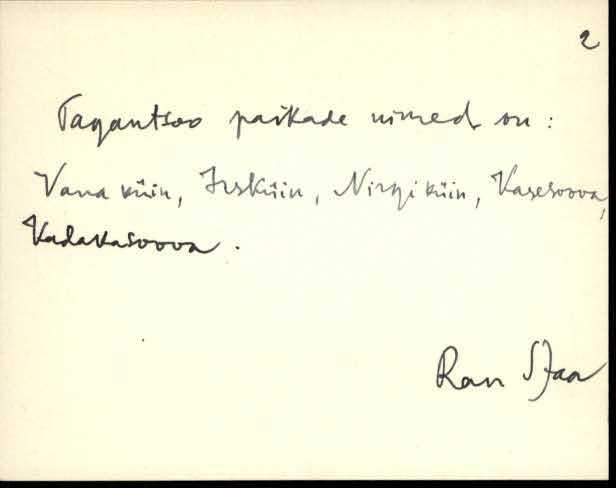 2
Tagantsoo paikade nimed on:
Vana küin, Irsküin, Nirgi küin, Kasesoova,
Kadakasoova.
Ran Jaa